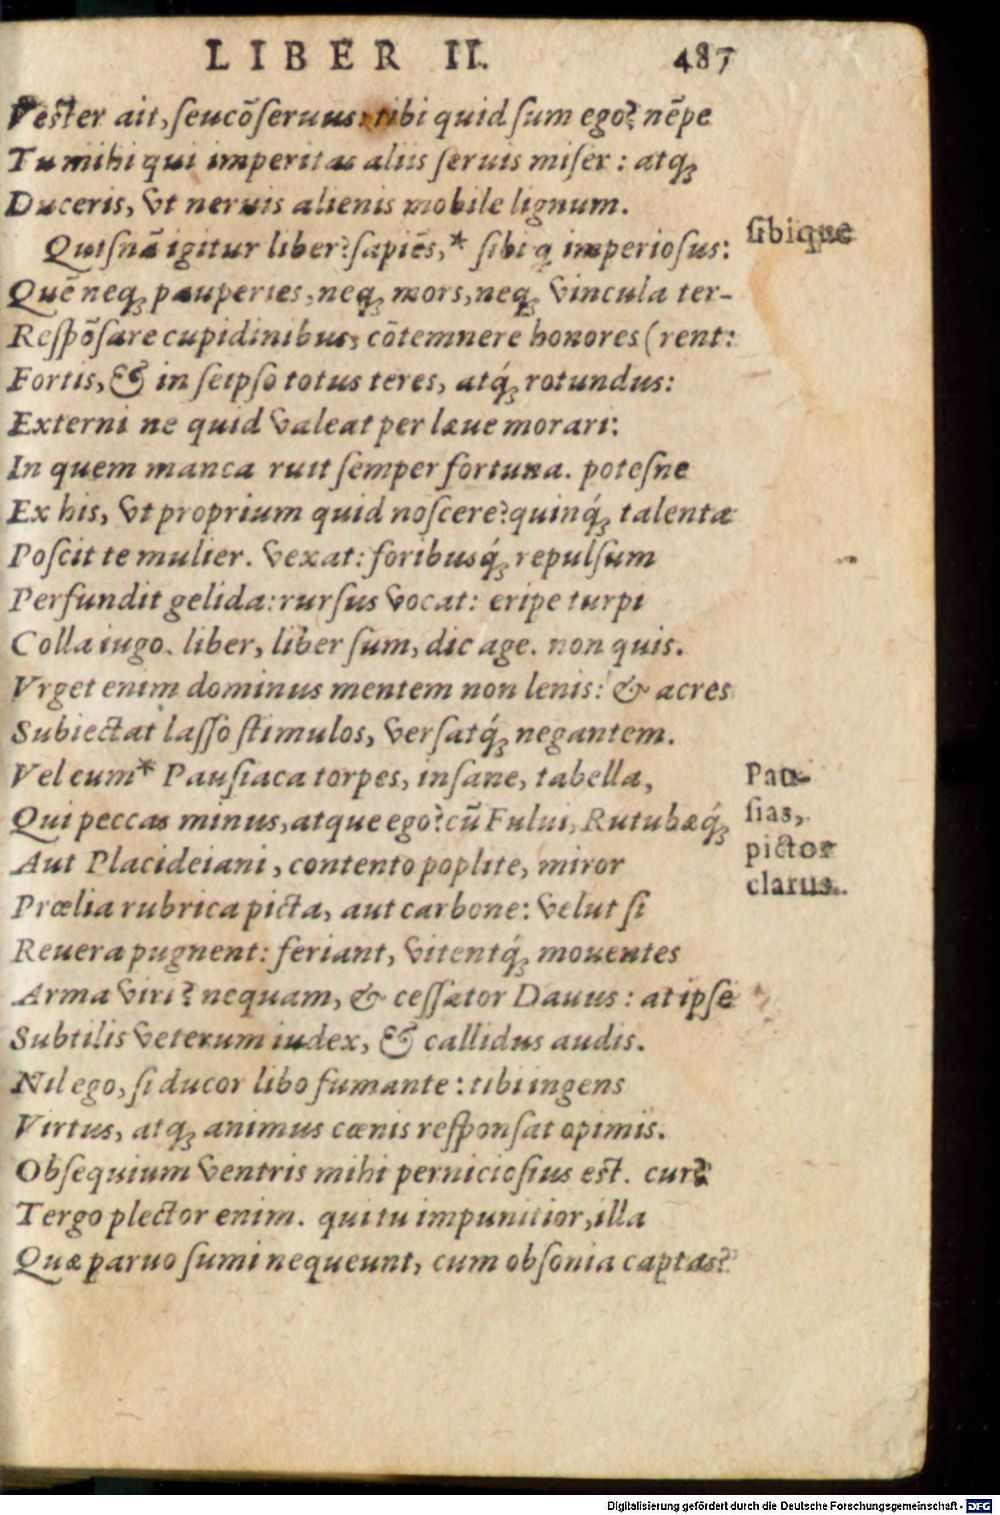 LIBER II. 487
Vester ait, ſeu cõſeruus: tibi quid ſum ego? nẽpe
Tu mihi qui imperitas aliis ſeruis miſer: atq́;
Duceris, vt neruis alienis mobile lignum.
Quiſnã igitur liber? ſapiẽs,* ſibi q imperioſus: ſibique
Quẽ neq; pauperies, neq; mors, neq; vincula ter-
Reſpõſare cupidinibus, cõtemnere honores (rent:
Fortis, & in ſeipſo totus teres, atq́; rotundus:
Externi ne quid valeat per læue morari:
In quem manca ruit ſemper fortuna. poteſne
Ex his, vt proprium quid noſcere? quinq́; talenta
Poſcit te mulier. vexat: foribusq́; repulſum
Perfundit gelida: rurſus vocat: eripe turpi
Colla iugo. liber, liber ſum, dic age. non quis.
Vrget enim dominus mentem non lenis: & acres
Subiectat laſſo ſtimulos, verſatq́; negantem.
Vel cum* Pauſiaca torpes, inſane, tabella, Pau-
Qui peccas minus, atque ego? cũ Fului, Rutubæq́; ſias,
Aut Placideiani, contento poplite, miror pictor
Prœlia rubrica picta, aut carbone: velut ſi clarus.
Reuera pugnent: feriant, vitentq́; mouentes
Arma viri? nequam, & ceſſator Dauus: at ipſe
Subtilis veterum iudex, & callidus audis.
Nil ego, ſi ducor libo fumante: tibi ingens
Virtus, atq; animus cœnis reſponſat opimis.
Obſequium ventris mihi pernicioſius est. cur?
Tergo plector enim. qui tu impunitior, illa
Quæ paruo ſumi nequeunt, cum obſonia captas?
Digitalisierung gefördert durch die Deutsche Forschungsgemeinschaft - DFG